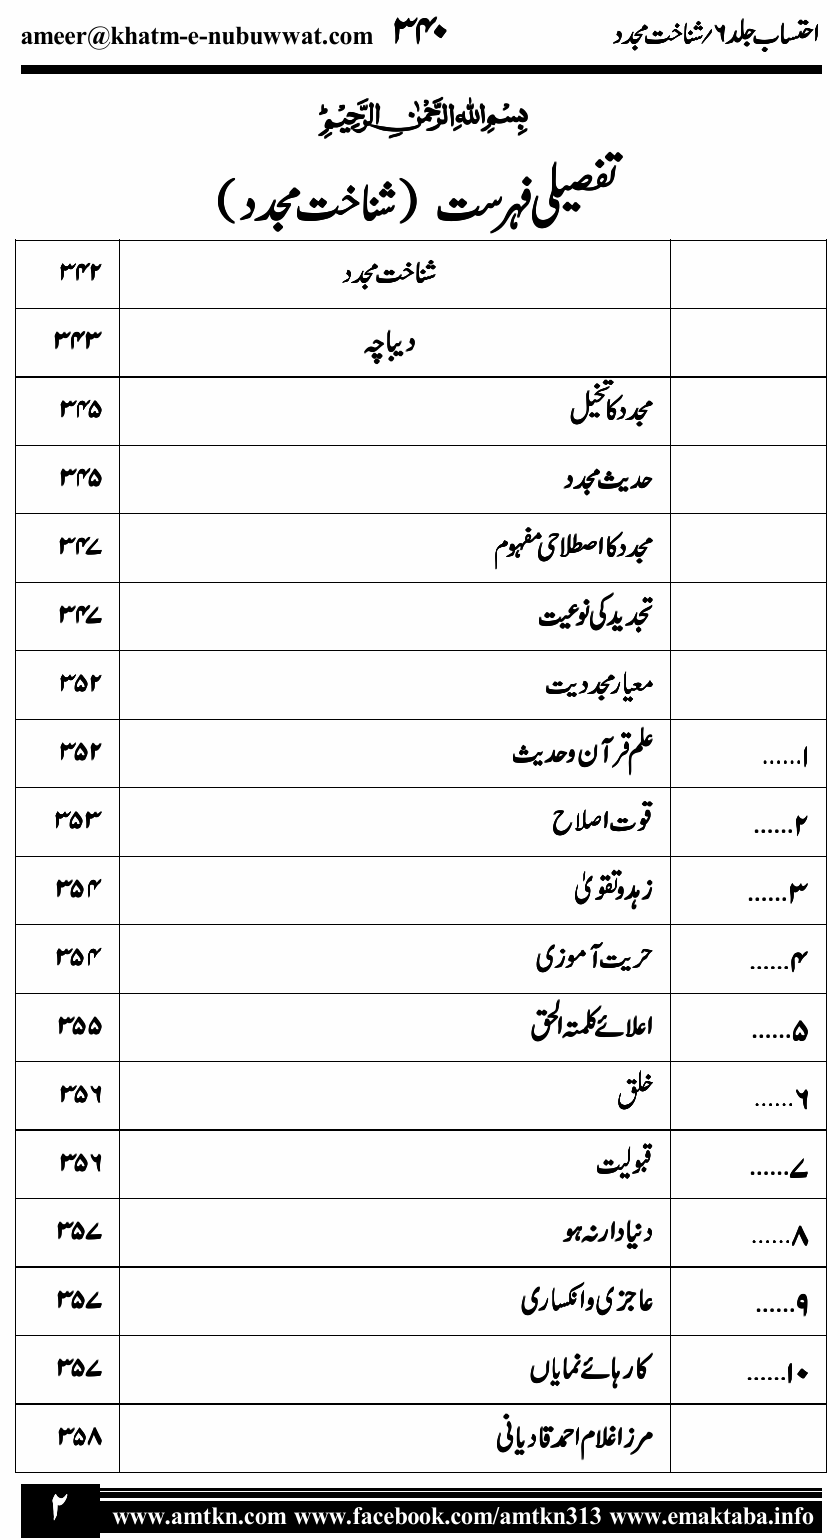 احتساب جلد ۶/شناخت مجدد ۳۴۰ ameer@khatm-e-nubuwwat.com
بِسْمِ اللهِ الرَّحْمٰنِ الرَّحِيْمِ
تفصیلی فہرست (شناخت مجدد)
شناخت مجدد ۳۴۲
دیباچہ ۳۴۳
مجدد کا تخیل ۳۴۵
حدیث مجدد ۳۴۵
مجدد کا اصطلاحی مفہوم ۳۴۷
تجدید کی نوعیت ۳۴۷
معیار مجددیت ۳۵۲
۱...... علم قرآن وحدیث ۳۵۲
۲...... قوت اصلاح ۳۵۳
۳...... زہد وتقویٰ ۳۵۴
۴...... حریت آموزی ۳۵۴
۵...... اعلائے کلمتہ الحق ۳۵۵
۶...... خلق ۳۵۶
۷...... قبولیت ۳۵۶
۸...... دنیا دار نہ ہو ۳۵۷
۹...... عاجزی وانکساری ۳۵۷
۱۰...... کارہائے نمایاں ۳۵۷
مرزا غلام احمد قادیانی ۳۵۸
۲ www.amtkn.com www.facebook.com/amtkn313 www.emaktaba.info